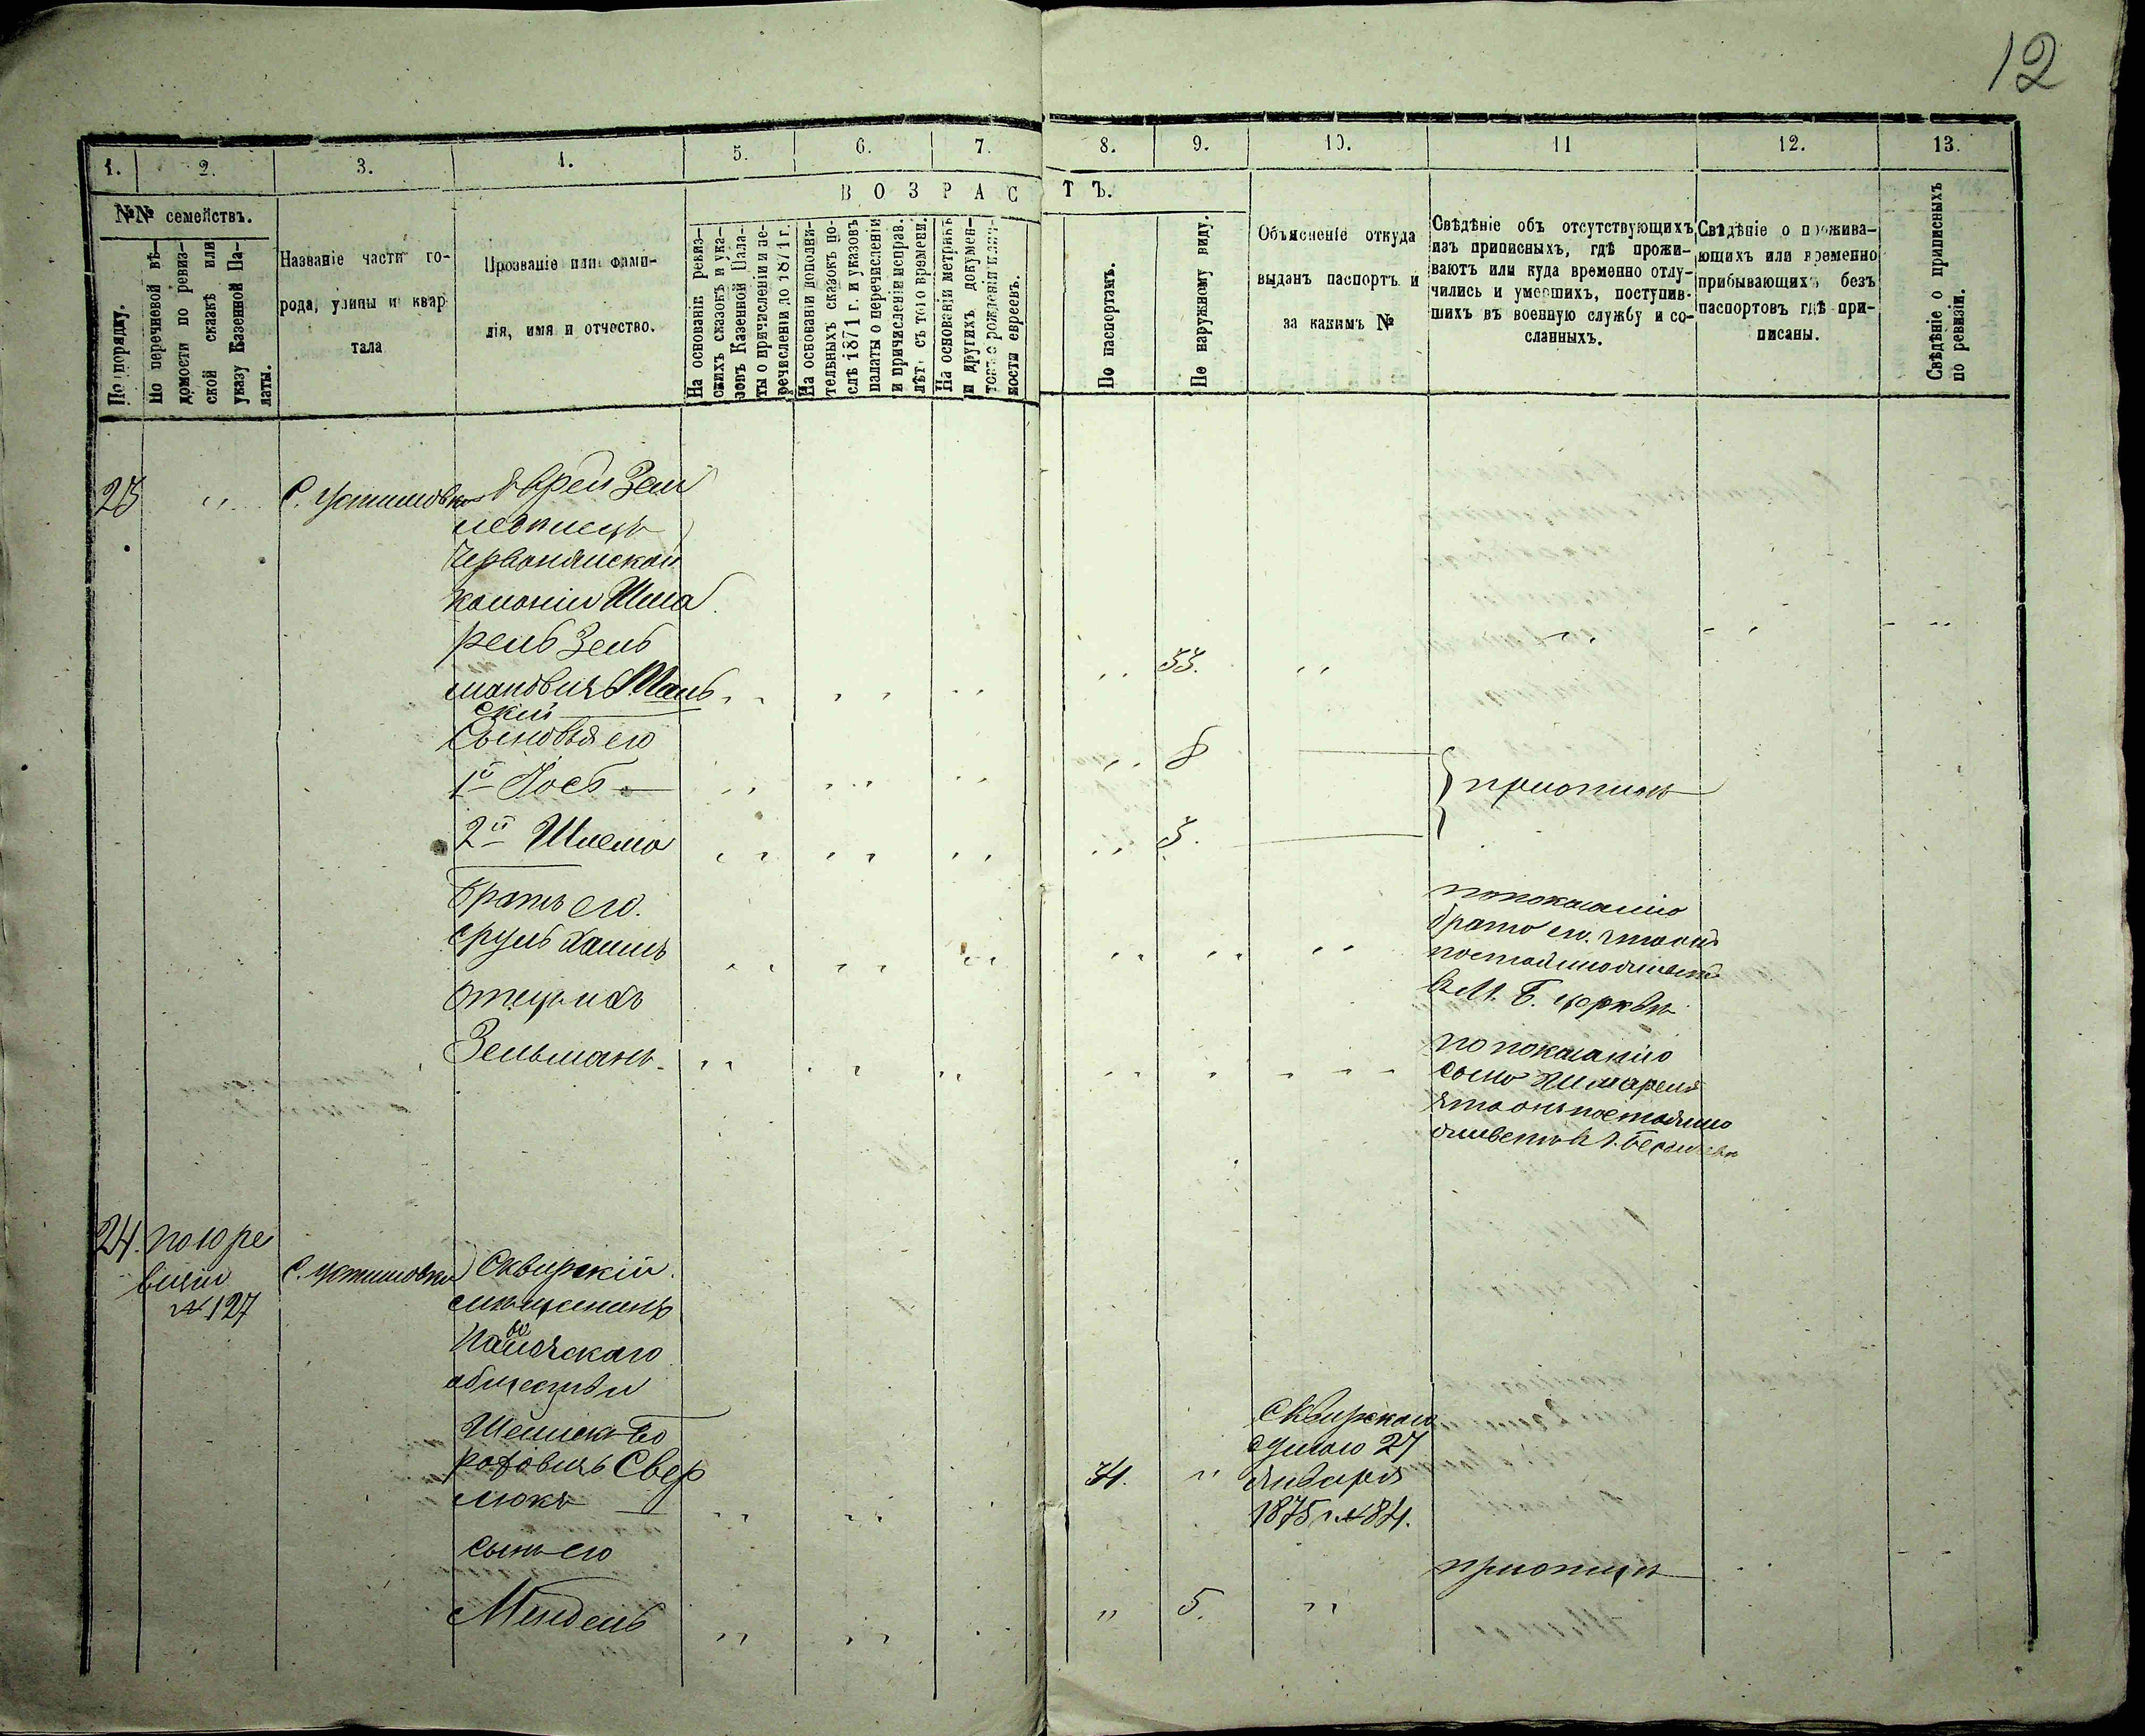 12
1. 2. 3. 4. 5. 6. 7. 8. 9. 10. 11 12. 13.
ВОЗРАСТЪ.
№№ семействъ.
По порядку.
По перечневой вѣ-
домости по ревиз-
ской сказкѣ или
указу Казенной Па-
латы.
Названіе части го-
рода, улицы и квар
тала
Прозваніе или фами-
лія, имя и отчество.
На основаніи ревиз-
скихъ сказокъ и ука-
зовъ Казенной Пала-
ты о причисленіи и пе-
речисленіи до 1871 г.
На основаніи дополни-
тельныхъ сказокъ по-
слѣ 1871 г. и указовъ
палаты о перечисленіи
и причисленіи исправ.
лѣтъ съ того времени.
На основаніи метрикъ
и другихъ докумен-
товъ о рожденіи
ности евреевъ.
По паспортамъ.
По наружному виду.
Объясненіе откуда
выданъ паспортъ и
за какимъ №
Свѣдѣніе объ отсутствующихъ
изъ приписныхъ, гдѣ прожи-
ваютъ или куда временно отлу-
чились и умершихъ, поступив-
шихъ въ военную службу и со-
сланныхъ.
Свѣдѣніе о прожива-
ющихъ или временно
прибывающихъ безъ
паспортовъ гдѣ при-
писаны.
Свѣдѣніе о приписныхъ
по ревизіи.
23 " С. Устимовка Еврей Зем
ледѣлецъ
Червонянской
колоніи Шма
рель Зель
мановичъ Шань
ский 55.
Сыновья его
1й Іосъ 8
2й Шлема 3.
}
братъ его.
Сруль Хаимъ
по показанію
брата его что онъ
постоянно живетъ
в М. Б. Церквѣ
отецъ ихъ
Зельманъ.
по показанію
сына Шмареля
что онъ постоянно
живетъ в г. Бердичевѣ
24. по 10 ре
визіи
№ 127
С. Устимовка Сквирскій
мѣщанинъ
общества
Сверлюкъ
34. "
Сквирскаго
27
января
1875 г. № 84.
сынъ его
Мендель " 5. "